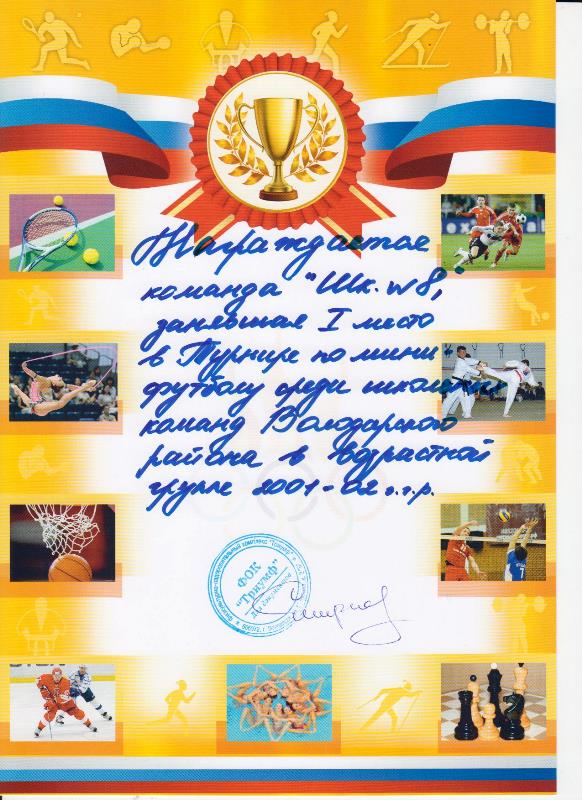 Награждается
команда "Шк. №8,"
занявшая I место
в Турнире по мини
футболу среди школьных
команд Володарского
района в возрастной
группе 2001-02 г.г.р.
ФОК
"Триумф"
Для документов